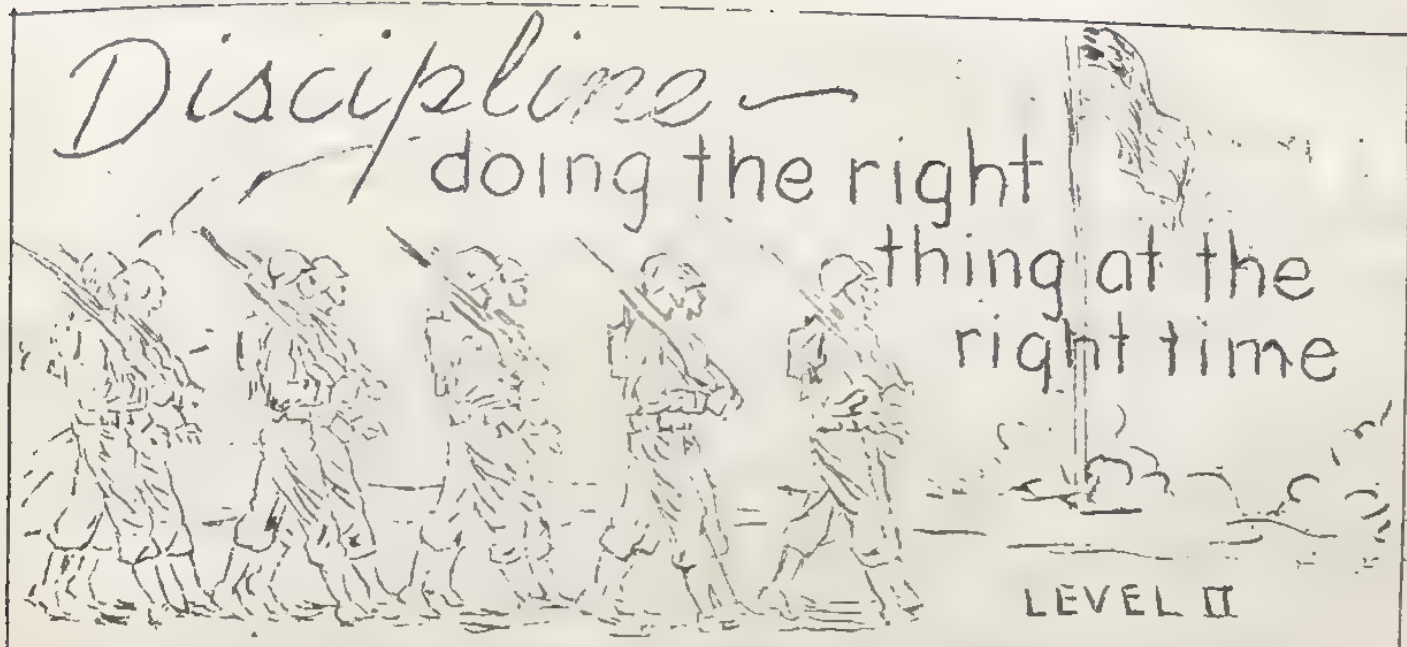 Discipline —
doing the right
thing at the
right time
LEVEL II